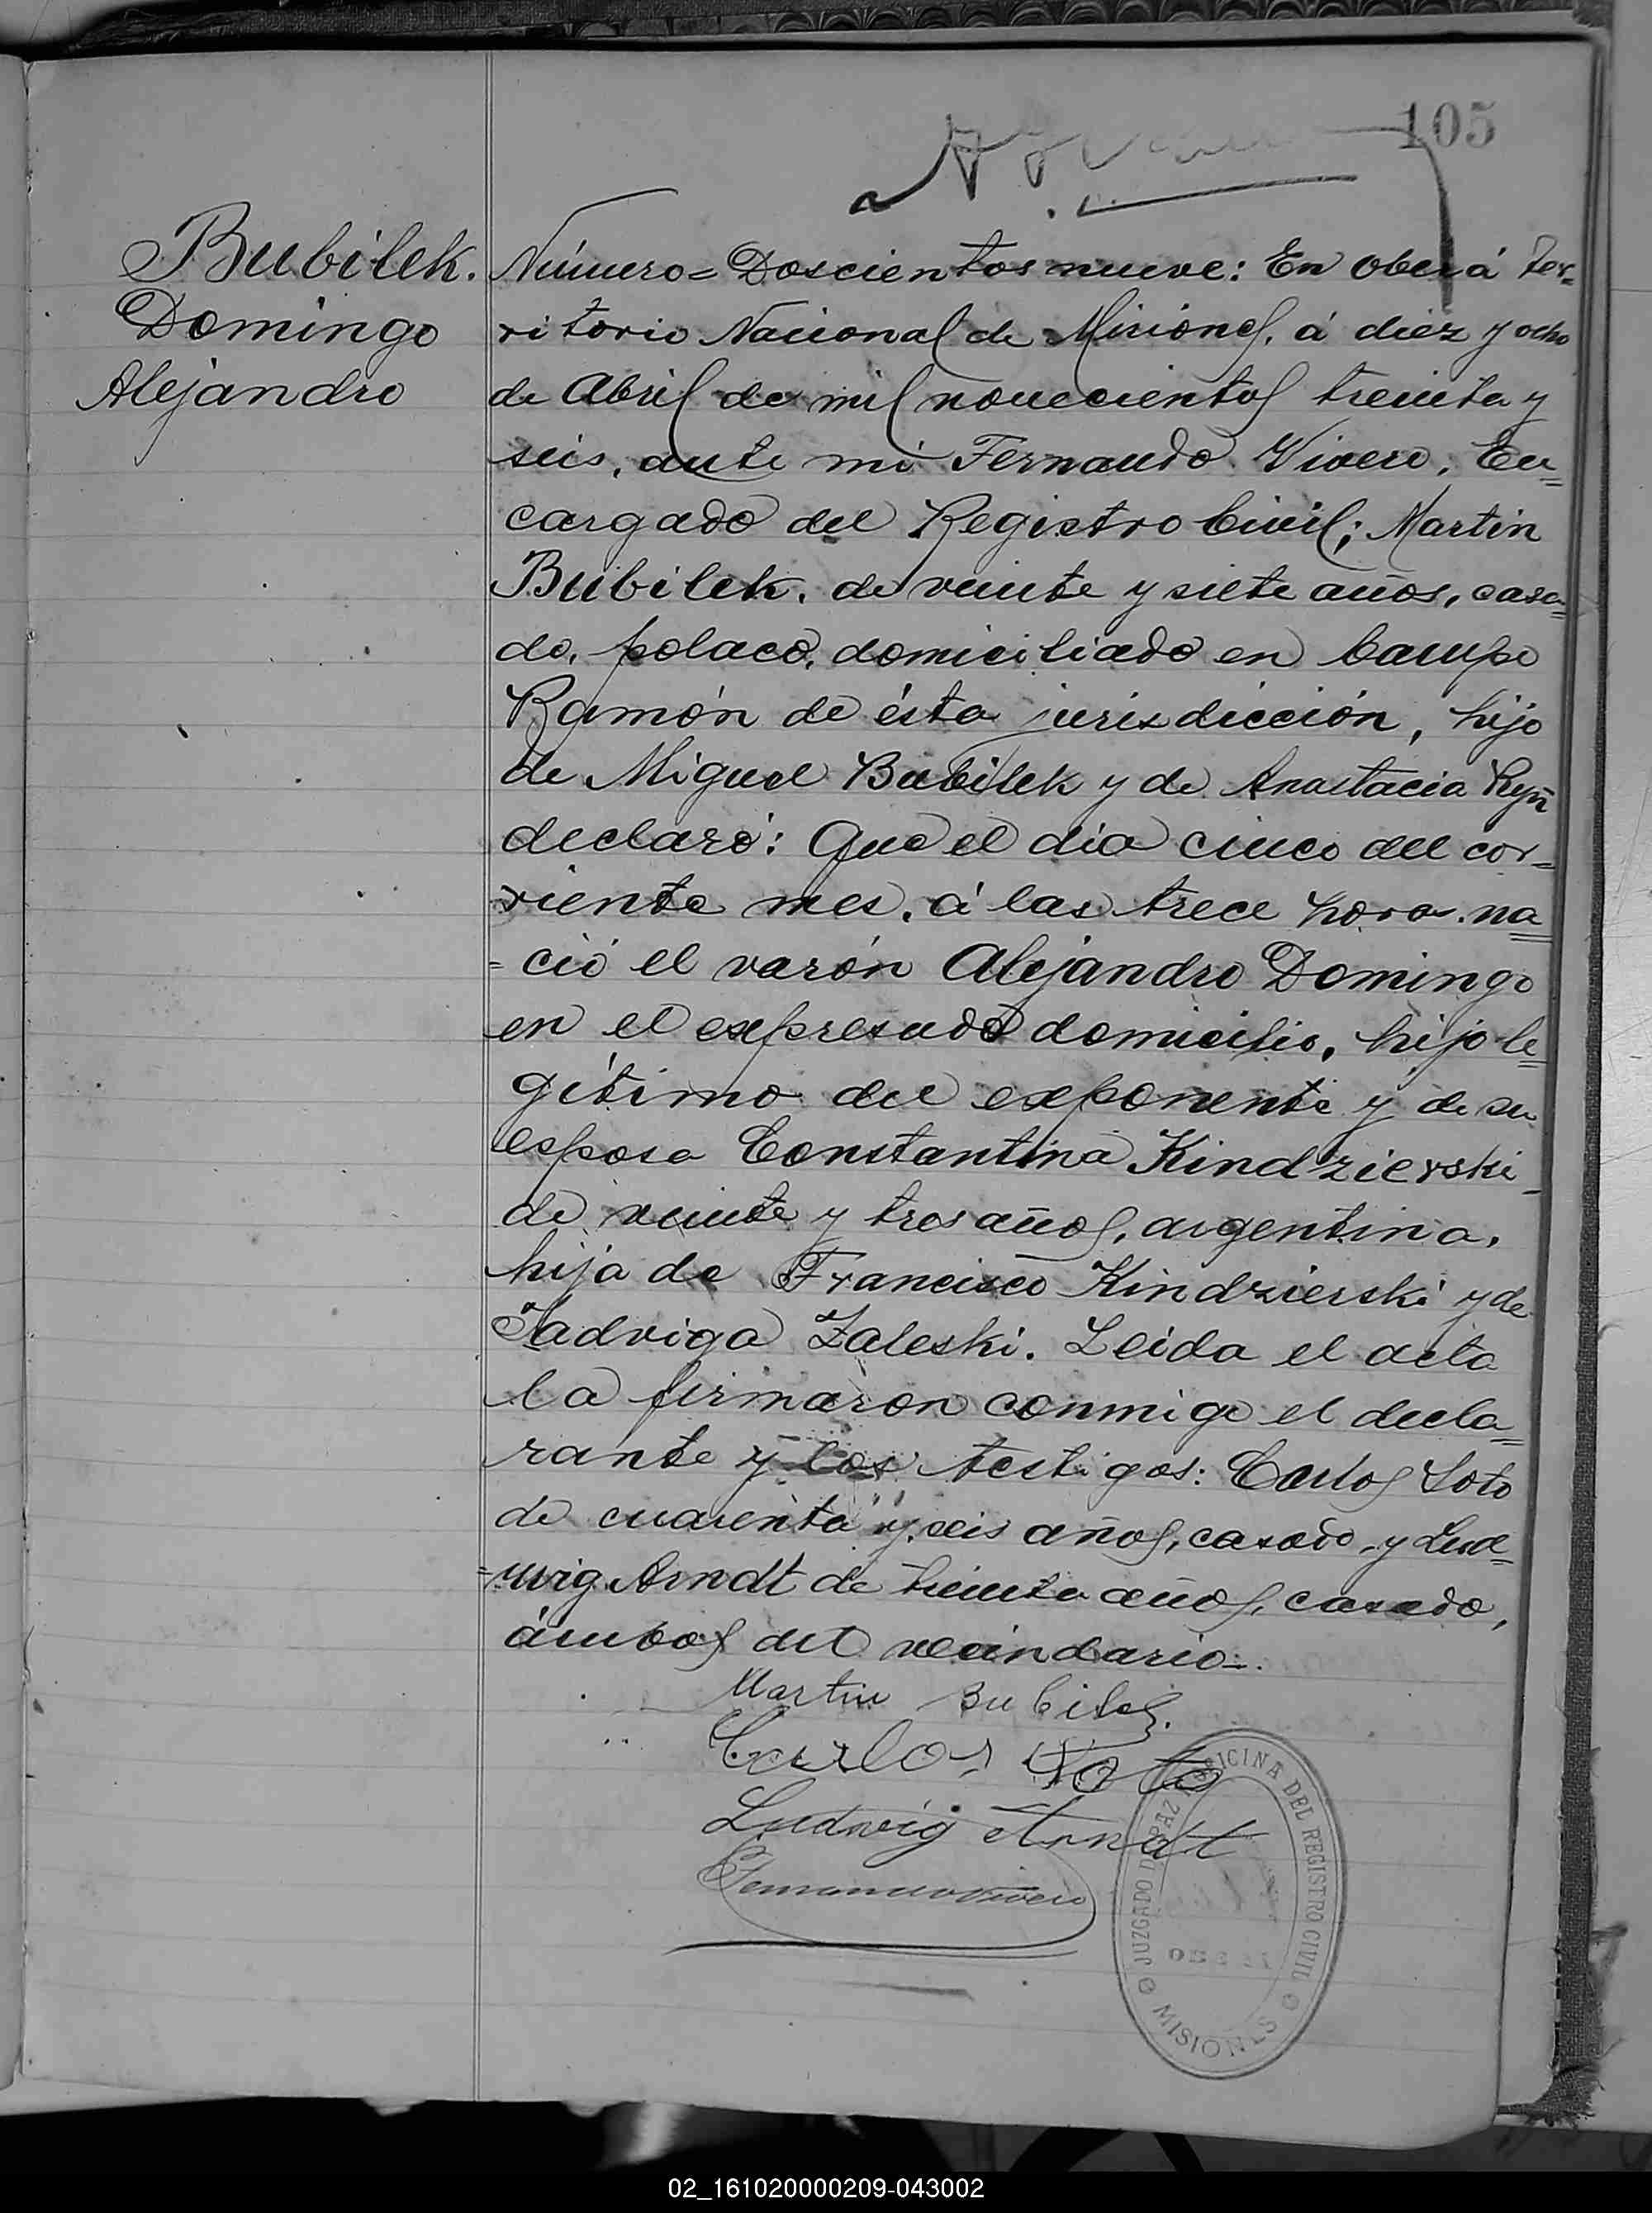 105
Bubilek.
Domingo
Alejandro
Número = Doscientos nueve: En Oberá Ter=
ritorio Nacional de Misiones, á diez y ocho
de Abril de mil novecientos treinta y
seis, ante mi Fernando Vivero, En=
cargado del Registro Civil; Martin
Bubilek, de veinte y siete años, casa=
do, polaco, domiciliado en Campo
Ramón de ésta jurisdicción, hijo
de Miguel Bubilek y de Anastacia
declaró: Que el día cinco del cor=
riente mes, á las trece horas. na=
=ció el varón Alejandro Domingo
en el expresado domicilio, hijo le=
gítimo del exponente y de su
esposa Constantina Kindzierski-
de veinte y tres años, argentina,
hija de Francisco Kindzierski y de
Jadviga Zaleski. Leida el acta
la firmaron conmigo el decla=
rante y los testigos: Carlos Soto
de cuarenta y seis años, casado, y Lud=
=wig Arndt de treinta años, casado,
ámbos del vecindario=.
Martin Bubilek.
Carlos Soto
Ludwig Arndt
Fernando Vivero
JUZGADO DE PAZ Y OFICINA DEL REGISTRO CIVIL
MISIONES
02_161020000209-043002